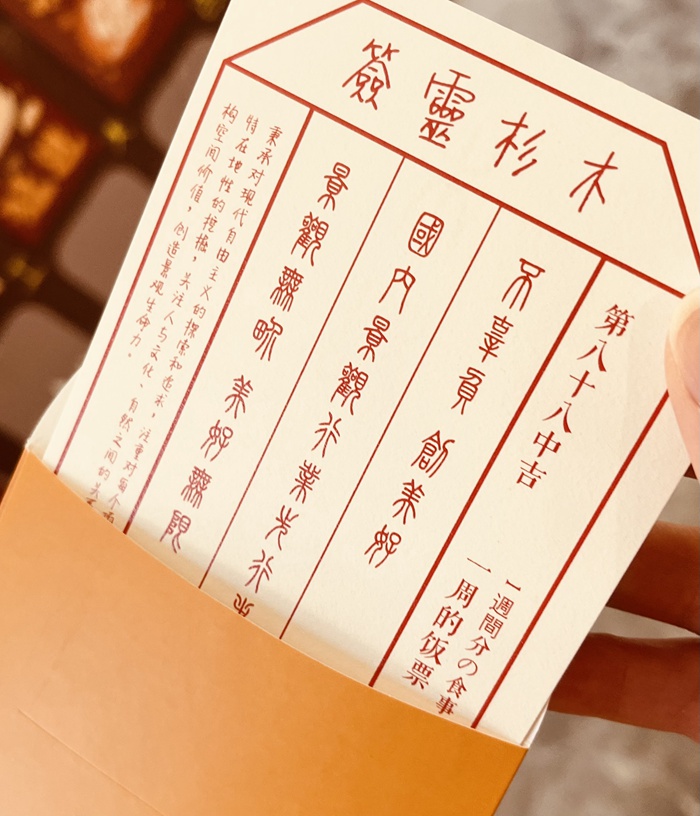 木杉靈簽
第八十八中吉
1週間分の食事
一周的饭票
不辜負 創美好
國內景觀行業先行
景觀無界 美好無限
秉承对现代自由主义的探索和追求，注重对每个
特在地性的挖掘，关注人与文化、自然之间的关
构空间价值，创造景观生命力。